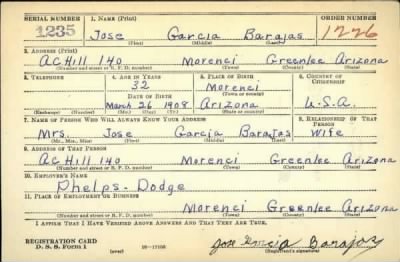 SERIAL NUMBER 1. NAME (Print) ORDER NUMBER
1235 Jose Garcia Barajas 1226
(First) (Middle) (Last)
2. ADDRESS (Print)
AC Hill 140 Morenci Greenlee Arizona
(Number and street or R. F. D. number) (Town) (County) (State)
3. TELEPHONE 4. AGE IN YEARS 5. PLACE OF BIRTH 6. COUNTRY OF CITIZENSHIP
32 Morenci
DATE OF BIRTH (Town or county)
March 26 1908 Arizona U.S.A.
(Exchange) (Number) (Mo.) (Day) (Yr.) (State or country)
7. NAME OF PERSON WHO WILL ALWAYS KNOW YOUR ADDRESS 8. RELATIONSHIP OF THAT PERSON
Mrs. Jose Garcia Barajas Wife
(Mr., Mrs., Miss) (First) (Middle) (Last)
9. ADDRESS OF THAT PERSON
AC Hill 140 Morenci Greenlee Arizona
(Number and street or R. F. D. number) (Town) (County) (State)
10. EMPLOYER'S NAME
Phelps-Dodge
11. PLACE OF EMPLOYMENT OR BUSINESS
Morenci Greenlee Arizona
(Number and street or R. F. D. number) (Town) (County) (State)
I AFFIRM THAT I HAVE VERIFIED ABOVE ANSWERS AND THAT THEY ARE TRUE.
REGISTRATION CARD Jose Garcia Barajas
D. S. S. Form 1 (over) 16-17105 (Registrant's signature)